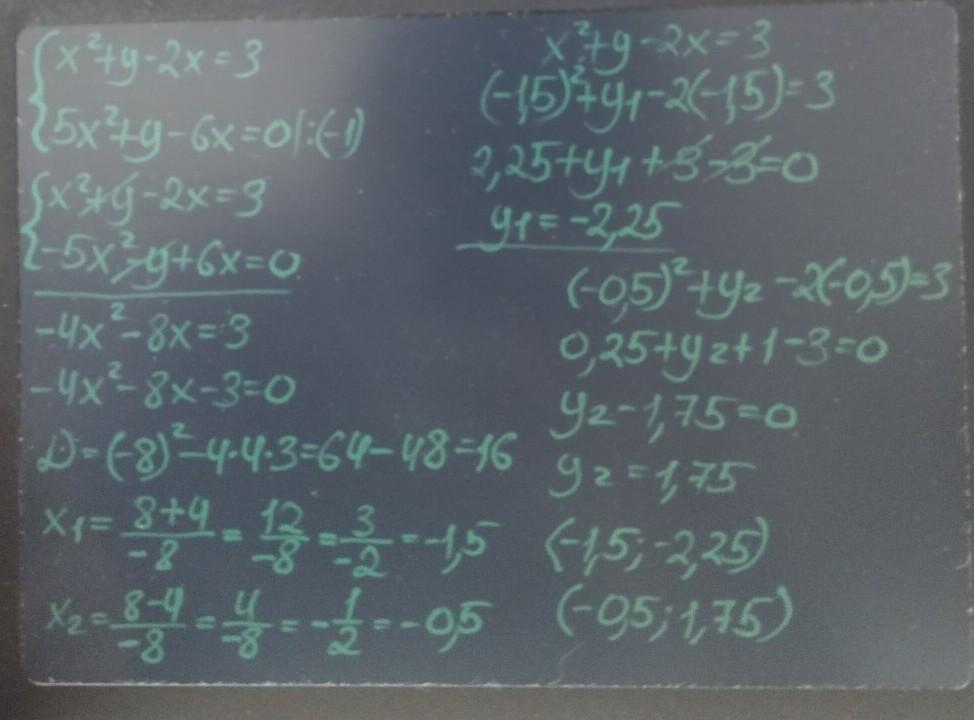 x²+y-2x=3
5x²+y-6x=0|:(-1)
x²+y-2x=3
-5x²-y+6x=0
-4x²-8x=3
-4x²-8x-3=0
D=(-8)²-4·4·3=64-48=16
x₁=(8+4)/(-8)=12/(-8)=3/(-2)=-1,5
x₂=(8-4)/(-8)=4/(-8)=-1/2=-0,5
x²+y-2x=3
(-1,5)²+y₁-2(-1,5)=3
2,25+y₁+3-3=0
y₁=-2,25
(-0,5)²+y₂-2(-0,5)=3
0,25+y₂+1-3=0
y₂-1,75=0
y₂=1,75
(-1,5;-2,25)
(-0,5;1,75)